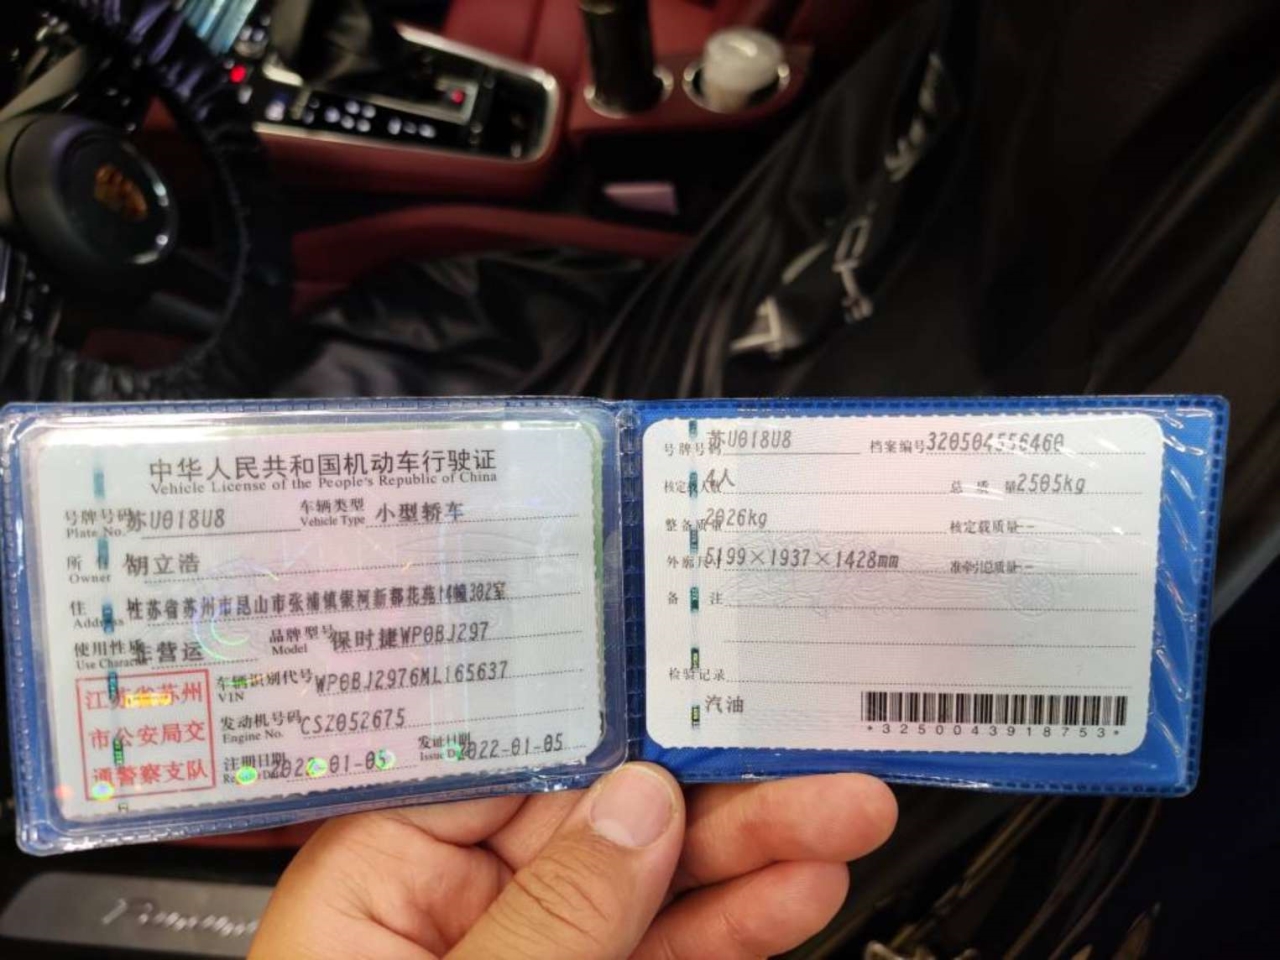 中华人民共和国机动车行驶证
Vehicle License of the People's Republic of China
号牌号码 苏U018U8 车辆类型 小型轿车
Plate No. Vehicle Type
所 有 人 胡立浩
Owner
住 址 江苏省苏州市昆山市张浦镇银河新都花苑14幢302室
Address
使用性质 非营运 品牌型号 保时捷WP0BJ297
Use Character Model
车辆识别代号 WP0BJ2976ML165637
VIN
发动机号码 CSZ052675
Engine No.
注册日期 2022-01-05 发证日期 2022-01-05
Register Date Issue Date
江苏省苏州
市公安局交
通警察支队
号牌号码 苏U018U8 档案编号 320504556460
核定载人数 4人 总 质 量 2505kg
整备质量 2026kg 核定载质量 --
外廓尺寸 5199×1937×1428mm 准牵引总质量 --
备 注
检验记录
汽油
*3250043918753*